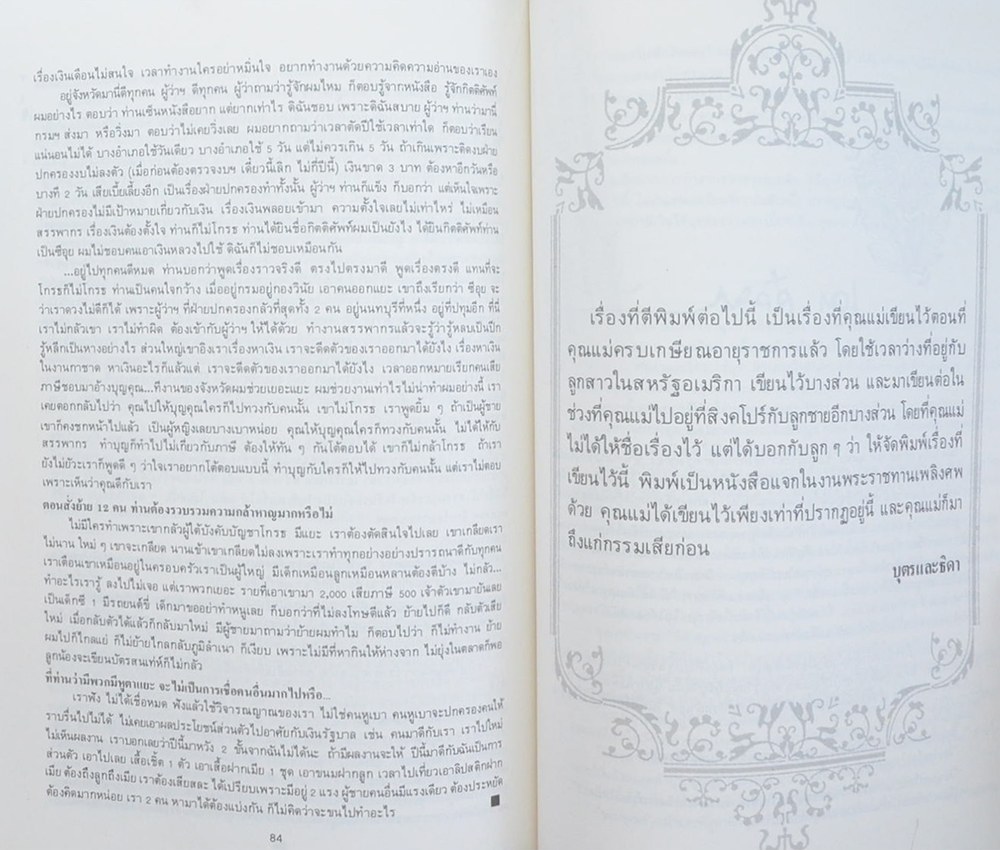 เรื่องเงินเดือนไม่สนใจ เวลาทำงานใครอย่าหมิ่นใจ อยากทำงานด้วยความคิดความอ่านของเราเอง
อยู่จังหวัดมานี่ดีทุกคน ผู้ว่าฯ ดีทุกคน ผู้ว่าถามว่ารู้จักผมไหม ก็ตอบรู้จากหนังสือ รู้จักกิตติศัพท์
ผมอย่างไร ตอบว่า ท่านเซ็นหนังสือยาก แต่ยากเท่าไร ดิฉันชอบ เพราะดิฉันสบาย ผู้ว่าฯ ท่านว่ามานี่
กรมฯ ส่งมา หรือวิ่งมา ตอบว่าไม่เคยวิ่งเลย ผมอยากถามว่าเวลาตัดปีใช้เวลาเท่าใด ก็ตอบว่าเรียน
แน่นอนไม่ได้ บางอำเภอใช้วันเดียว บางอำเภอใช้ 5 วัน แต่ไม่ควรเกิน 5 วัน ถ้าเกินเพราะติดงบฝ่าย
ปกครองงบไม่ลงตัว (เมื่อก่อนต้องตรวจงบฯ เดี๋ยวนี้เลิก ไม่กี่ปีนี้) เงินขาด 3 บาท ต้องหาอีกวันหรือ
บางที 2 วัน เสียเบี้ยเลี้ยงอีก เป็นเรื่องฝ่ายปกครองทำทั้งนั้น ผู้ว่าฯ ท่านก็แข็ง ก็บอกว่า แต่เห็นใจเพราะ
ฝ่ายปกครองไม่มีเป้าหมายเกี่ยวกับเงิน เรื่องเงินพลอยเข้ามา ความตั้งใจเลยไม่เท่าไหร่ ไม่เหมือน
สรรพากร เรื่องเงินต้องตั้งใจ ท่านก็ไม่โกรธ ท่านได้ยินชื่อกิตติศัพท์ผมเป็นยังไง ได้ยินกิตติศัพท์ท่าน
เป็นซีอุย ผมไม่ชอบคนเอาเงินหลวงไปใช้ ดิฉันก็ไม่ชอบเหมือนกัน
...อยู่ไปทุกคนดีหมด ท่านบอกว่าพูดเรื่องราวจริงดี ตรงไปตรงมาดี พูดเรื่องตรงดี แทนที่จะ
โกรธก็ไม่โกรธ ท่านเป็นคนใจกว้าง เมื่ออยู่กรมอยู่กองวินัย เอาคนออกแยะ เขาถึงเรียกว่า ซีอุย จะ
ว่าเราดวงไม่ดีก็ได้ เพราะผู้ว่าฯ ที่ฝ่ายปกครองกลัวที่สุดทั้ง 2 คน อยู่นนทบุรีที่หนึ่ง อยู่ที่ปทุมอีก ที่นี่
เราไม่กลัวเขา เราไม่ทำผิด ต้องเข้ากับผู้ว่าฯ ให้ได้ด้วย ทำงานสรรพากรแล้วจะรู้ว่ารู้หลบเป็นปีก
รู้หลีกเป็นหางอย่างไร ส่วนใหญ่เขาอิงเราเรื่องหาเงิน เราจะดีดตัวของเราออกมาได้ยังไง เรื่องหาเงิน
ในงานกาชาด หาเงินอะไรก็แล้วแต่ เราจะดีดตัวของเราออกมาได้ยังไง เวลาออกหมายเรียกคนเสีย
ภาษีชอบมาอ้างบุญคุณ...ที่งานของจังหวัดผมช่วยเยอะแยะ ผมช่วยงานเท่าไรไม่น่าทำผมอย่างนี้ เรา
เคยตอกกลับไปว่า คุณไปให้บุญคุณใครก็ไปทวงกับคนนั้น เขาไม่โกรธ เราพูดยิ้ม ๆ ถ้าเป็นผู้ชาย
เขาก็คงชกหน้าไปแล้ว เป็นผู้หญิงเลยบางเบาหน่อย คุณให้บุญคุณใครก็ทวงกับคนนั้น ไม่ได้ให้กับ
สรรพากร ทำบุญก็ทำไปไม่เกี่ยวกับภาษี ต้องให้ทัน ๆ กันโต้ตอบได้ เขาก็ไม่กล้าโกรธ ถ้าเรา
ยังไม่ยัวะเราก็พูดดี ๆ ว่าใจเราอยากโต้ตอบแบบนี้ ทำบุญกับใครก็ให้ไปทวงกับคนนั้น แต่เราไม่ตอบ
เพราะเห็นว่าคุณดีกับเรา
ตอนสั่งย้าย 12 คน ท่านต้องรวบรวมความกล้าหาญมากหรือไม่
ไม่มีใครทำเพราะเขากลัวผู้ใต้บังคับบัญชาโกรธ มีแยะ เราต้องตัดสินใจไปเลย เขาเกลียดเรา
ไม่นาน ใหม่ ๆ เขาจะเกลียด นานเข้าเขาเกลียดไม่ลงเพราะเราทำทุกอย่างอย่างปรารถนาดีกับทุกคน
เราเตือนเขาเหมือนอยู่ในครอบครัวเราเป็นผู้ใหญ่ มีเด็กเหมือนลูกเหมือนหลานต้องตีบ้าง ไม่กลัว...
ทำอะไรเรารู้ ลงไปไม่เจอ แต่เราพวกเยอะ รายที่เอาเขามา 2,000 เสียภาษี 500 เจ้าตัวเขามายันเลย
เป็นเด็กซี 1 มีรถยนต์ขี่ เด็กมาขออย่าทำหนูเลย ก็บอกว่าที่ไม่ลงโทษดีแล้ว ย้ายไปก็ดี กลับตัวเสีย
ใหม่ เมื่อกลับตัวได้แล้วก็กลับมาใหม่ มีผู้ชายมาถามว่าย้ายผมทำไม ก็ตอบไปว่า ก็ไม่ทำงาน ย้าย
ผมไปก็ไกลแย่ ก็ไม่ย้ายไกลกลับภูมิลำเนา ก็เงียบ เพราะไม่มีที่หากินให้ห่างจาก ไม่ยุ่งในตลาดก็พอ
ลูกน้องจะเขียนบัตรสนเท่ห์ก็ไม่กลัว
ที่ท่านว่ามีพวกมีหูตาแยะ จะไม่เป็นการเชื่อคนอื่นมากไปหรือ...
เราฟัง ไม่ได้เชื่อหมด ฟังแล้วใช้วิจารณญาณของเรา ไม่ใช่คนหูเบา คนหูเบาจะปกครองคนให้
ราบรื่นไปไม่ได้ ไม่เคยเอาผลประโยชน์ส่วนตัวไปอาศัยกับเงินรัฐบาล เช่น คนมาดีกับเรา เราไปใหม่
ไม่เห็นผลงาน เราบอกเลยว่าปีนี้มาหวัง 2 ขั้นจากฉันไม่ได้นะ ถ้ามีผลงานจะให้ ปีนี้มาดีกับฉันเป็นการ
ส่วนตัว เอาไปเลย เสื้อเชิ้ต 1 ตัว เอาเสื้อฝากเมีย 1 ชุด เอาขนมฝากลูก เวลาไปเที่ยวเอาลิปสติกฝาก
เมีย ต้องถึงลูกถึงเมีย เราต้องเสียสละ ได้เปรียบเพราะมีอยู่ 2 แรง ผู้ชายคนอื่นมีแรงเดียว ต้องประหยัด
ต้องคิดมากหน่อย เรา 2 คน หามาได้ต้องแบ่งกัน ก็ไม่คิดว่าจะขนไปทำอะไร
84
เรื่องที่ตีพิมพ์ต่อไปนี้ เป็นเรื่องที่คุณแม่เขียนไว้ตอนที่
คุณแม่ครบเกษียณอายุราชการแล้ว โดยใช้เวลาว่างที่อยู่กับ
ลูกสาวในสหรัฐอเมริกา เขียนไว้บางส่วน และมาเขียนต่อใน
ช่วงที่คุณแม่ไปอยู่ที่สิงคโปร์กับลูกชายอีกบางส่วน โดยที่คุณแม่
ไม่ได้ให้ชื่อเรื่องไว้ แต่ได้บอกกับลูก ๆ ว่า ให้จัดพิมพ์เรื่องที่
เขียนไว้นี้ พิมพ์เป็นหนังสือแจกในงานพระราชทานเพลิงศพ
ด้วย คุณแม่ได้เขียนไว้เพียงเท่าที่ปรากฏอยู่นี้ และคุณแม่ก็มา
ถึงแก่กรรมเสียก่อน
บุตรและธิดา